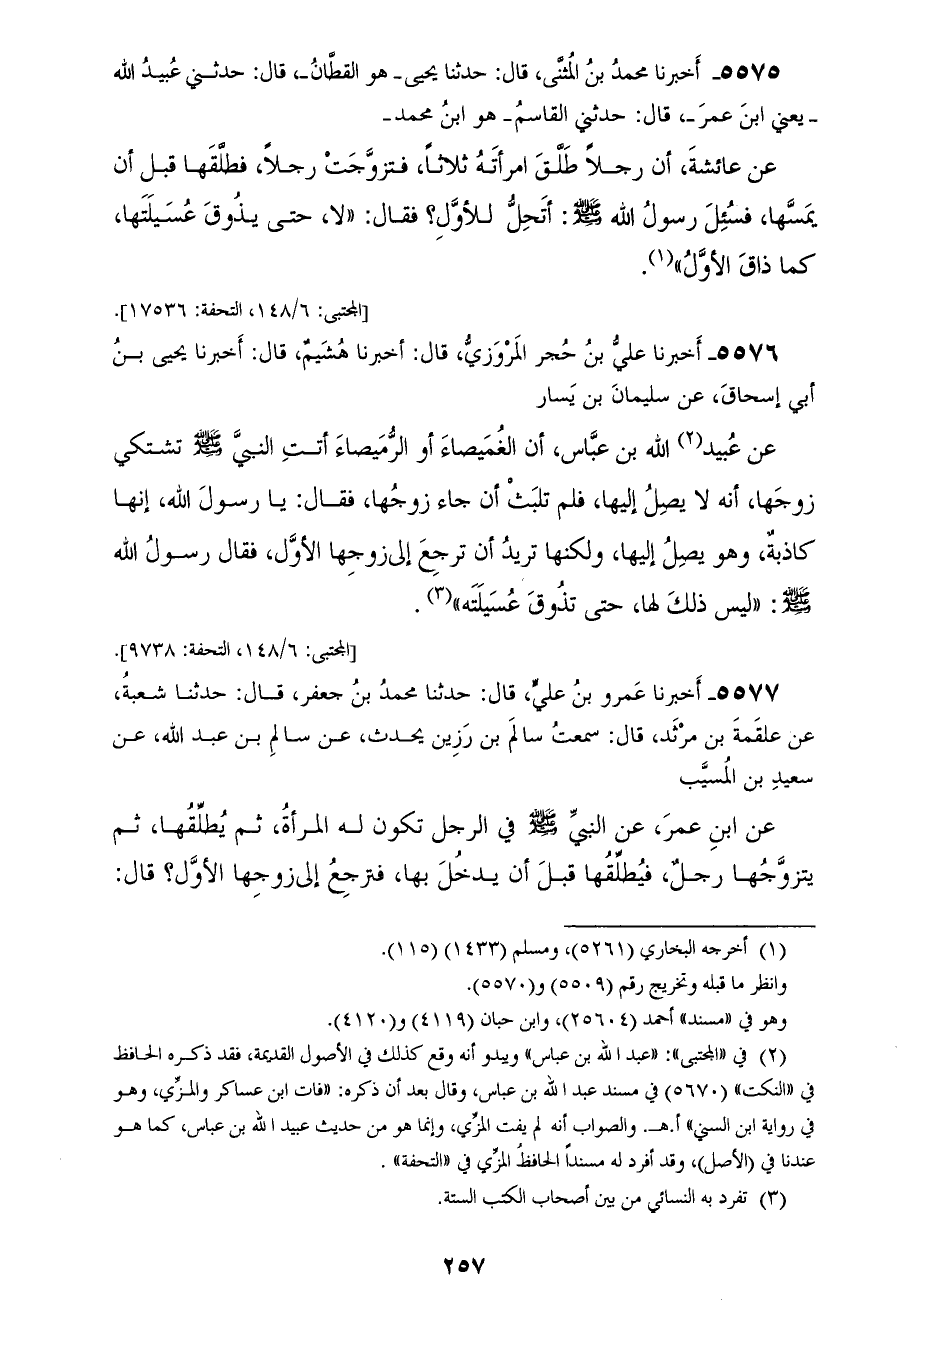 ٥٥٧٥ـ أَخبرنا محمدُ بنُ المُثنَّى، قال: حدثنا يحيى ـ هو القطَّانُ ـ، قال: حدثني عُبيدُ الله
ـ يعني ابنَ عمرَ ـ، قال: حدثني القاسمُ ـ هو ابنُ محمد ـ
عن عائشةَ، أن رجلاً طَلَّقَ امرأتَهُ ثلاثاً، فتزوَّجَتْ رجلاً، فطلَّقَها قبل أن
يَمسَّها، فسُئِلَ رسولُ الله ﷺ: أتَحِلُّ للأوَّلِ؟ فقال: «لا، حتى يذُوقَ عُسَيلَتَها،
كما ذاقَ الأوَّلُ»(١).
[المجتبى: ١٤٨/٦، التحفة: ١٧٥٣٦].
٥٥٧٦ـ أَخبرنا عليُّ بنُ حُجر المَرْوَزيُّ، قال: أخبرنا هُشَيمٌ، قال: أَخبرنا يحيى بنُ
أبي إسحاقَ، عن سليمانَ بن يَسار
عن عُبيد(٢) الله بن عبَّاس، أن الغُمَيصاءَ أو الرُّمَيصاءَ أتتِ النبيَّ ﷺ تشتكي
زوجَها، أنه لا يصِلُ إليها، فلم تلبَثْ أن جاء زوجُها، فقال: يا رسولَ الله، إنها
كاذبةٌ، وهو يصِلُ إليها، ولكنها تريدُ أن ترجعَ إلى زوجِها الأوَّل، فقال رسولُ الله
ﷺ: «ليس ذلكَ لها، حتى تذُوقَ عُسَيلَتَه»(٣).
[المجتبى: ١٤٨/٦، التحفة: ٩٧٣٨].
٥٥٧٧ـ أَخبرنا عَمرو بنُ عليٍّ، قال: حدثنا محمدُ بنُ جعفر، قال: حدثنا شعبةُ،
عن علقَمةَ بن مرْثَد، قال: سمعتُ سالمَ بن رَزِين يحدث، عن سالمِ بن عبد الله، عن
سعيدِ بن المُسيَّب
عن ابنِ عمرَ، عن النبيِّ ﷺ في الرجل تكون له المرأةُ، ثم يُطلِّقُها، ثم
يتزوَّجُها رجلٌ، فيُطلِّقُها قبلَ أن يدخُلَ بها، فترجعُ إلى زوجِها الأوَّل؟ قال:
(١) أخرجه البخاري (٥٢٦١)، ومسلم (١٤٣٣) (١١٥).
وانظر ما قبله وتخريج رقم (٥٥٠٩) و(٥٥٧٠).
وهو في «مسند» أحمد (٢٥٦٠٤)، وابن حبان (٤١١٩) و(٤١٢٠).
(٢) في «المجتبى»: «عبد الله بن عباس» ويبدو أنه وقع كذلك في الأصول القديمة، فقد ذكره الحافظ
في «النكت» (٥٦٧٠) في مسند عبد الله بن عباس، وقال بعد أن ذكره: «فات ابن عساكر والمزِّي، وهو
في رواية ابن السني» أ.هـ. والصواب أنه لم يفت المزِّي، وإنما هو من حديث عبيد الله بن عباس، كما هو
عندنا في (الأصل)، وقد أفرد له مسنداً الحافظُ المزِّي في «التحفة».
(٣) تفرد به النسائي من بين أصحاب الكتب الستة.
٢٥٧